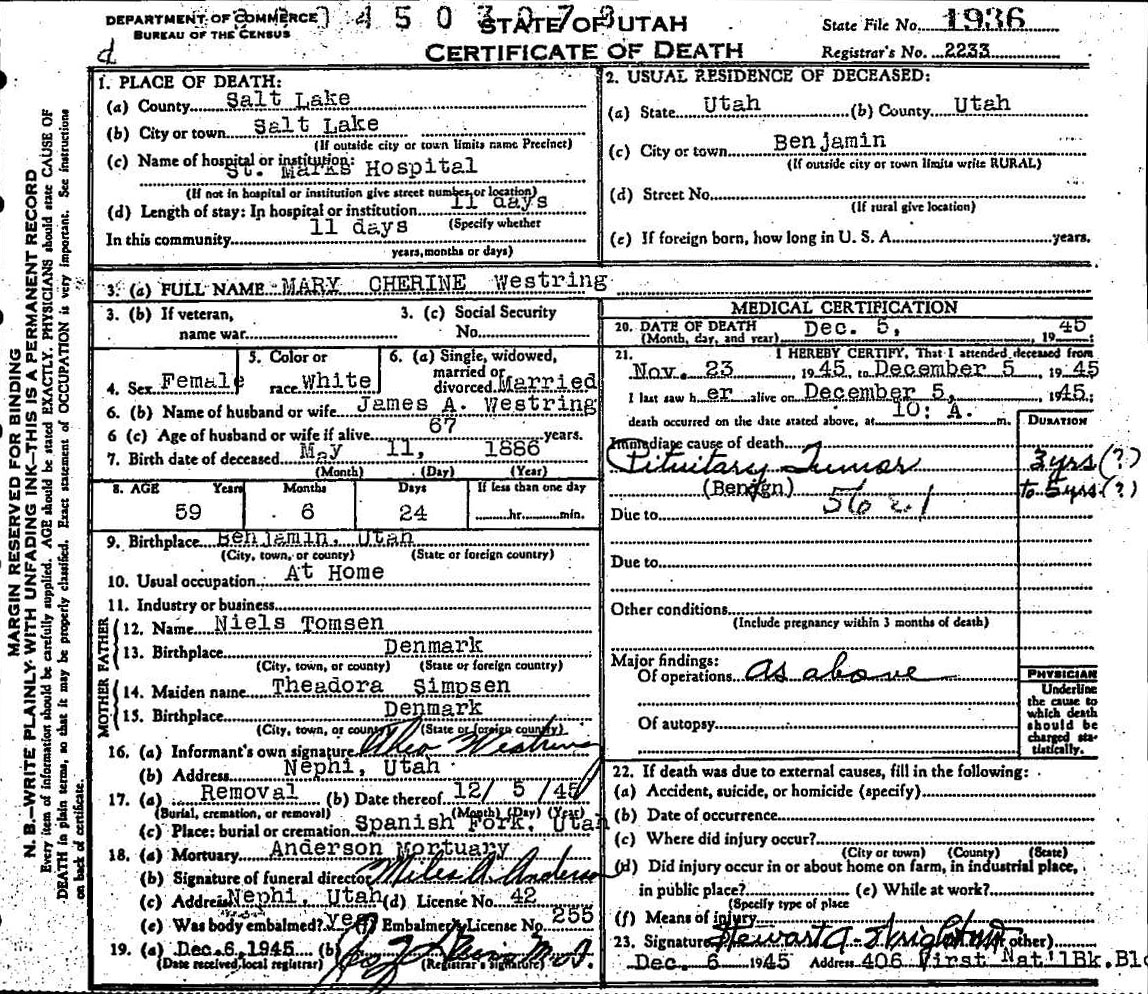 DEPARTMENT OF COMMERCE
BUREAU OF THE CENSUS
4 5 0 3 0 7 8
STATE OF UTAH
CERTIFICATE OF DEATH
State File No. 1936
Registrar's No. 2233
d
MARGIN RESERVED FOR BINDING
N. B.—WRITE PLAINLY WITH UNFADING INK—THIS IS A PERMANENT RECORD
Every item of information should be carefully supplied. AGE should be stated EXACTLY. PHYSICIANS should state CAUSE OF
DEATH in plain terms, so that it may be properly classified. Exact statement of OCCUPATION is very important. See instructions
on back of certificate.
1. PLACE OF DEATH:
(a) County Salt Lake
(b) City or town Salt Lake
(If outside city or town limits name Precinct)
(c) Name of hospital or institution:
St. Marks Hospital
(If not in hospital or institution give street number or location)
(d) Length of stay: In hospital or institution 11 days
(Specify whether
In this community 11 days
years, months or days)
2. USUAL RESIDENCE OF DECEASED:
(a) State Utah (b) County Utah
(c) City or town Benjamin
(If outside city or town limits write RURAL)
(d) Street No.
(If rural give location)
(e) If foreign born, how long in U. S. A. years.
3. (a) FULL NAME MARY CHERINE Westring
3. (b) If veteran,
name war
3. (c) Social Security
No.
4. Sex Female
5. Color or
race White
6. (a) Single, widowed,
married or
divorced Married
6. (b) Name of husband or wife James A. Westring
6 (c) Age of husband or wife if alive 67 years.
7. Birth date of deceased May 11, 1886
(Month) (Day) (Year)
8. AGE Years Months Days If less than one day
59 6 24 hr. min.
9. Birthplace Benjamin, Utah
(City, town, or county) (State or foreign country)
10. Usual occupation At Home
11. Industry or business
FATHER
12. Name Niels Tomsen
13. Birthplace Denmark
(City, town, or county) (State or foreign country)
MOTHER
14. Maiden name Theadora Simpsen
15. Birthplace Denmark
(City, town, or county) (State or foreign country)
16. (a) Informant's own signature Westring
(b) Address Nephi, Utah
17. (a) Removal (b) Date thereof 12/ 5 /45
(Burial, cremation, or removal) (Month) (Day) (Year)
(c) Place: burial or cremation Spanish Fork, Utah
18. (a) Mortuary Anderson Mortuary
(b) Signature of funeral director Miles A. Anderson
(c) Address Nephi, Utah (d) License No. 42
(e) Was body embalmed? yes (f) Embalmer's License No. 255
19. (a) Dec. 6, 1945 (b) M.D.
(Date received local registrar) (Registrar's signature)
MEDICAL CERTIFICATION
20. DATE OF DEATH Dec. 5, 1945
(Month, day, and year)
21. I HEREBY CERTIFY, That I attended deceased from
Nov. 23, 1945, to December 5, 1945
I last saw her alive on December 5, 1945;
death occurred on the date stated above, at 10: A. m.
DURATION
Immediate cause of death
Pituitary Tumor 3 yrs (?)
(Benign) to 5 yrs (?)
Due to
Due to
Other conditions
(Include pregnancy within 3 months of death)
Major findings:
Of operations as above
Of autopsy
PHYSICIAN
Underline
the cause to
which death
should be
charged sta-
tistically.
22. If death was due to external causes, fill in the following:
(a) Accident, suicide, or homicide (specify)
(b) Date of occurrence
(c) Where did injury occur?
(City or town) (County) (State)
(d) Did injury occur in or about home on farm, in industrial place,
in public place? (e) While at work?
(Specify type of place
(f) Means of injury
23. Signature Stewart A. Wright other)
Dec. 6 1945 Address 406 First Nat'l Bk. Bld